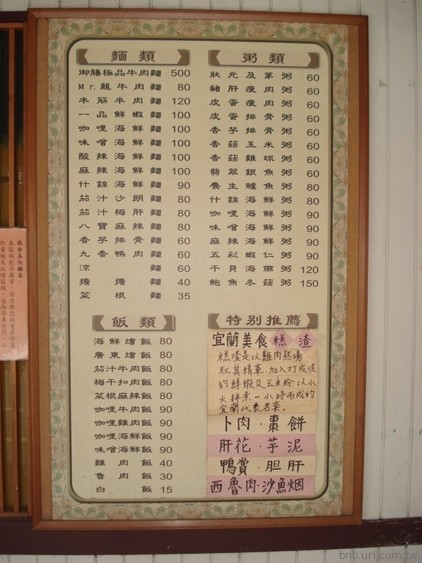 麵類
御膳極品牛肉麵 500
Mr.龍牛肉麵 80
半筋半肉麵 120
一品鮮蝦麵 100
咖哩海鮮麵 100
味噌海鮮麵 100
酸辣海鮮麵 100
麻辣海鮮麵 100
什錦海鮮麵 90
茄汁沙朗麵 80
茄汁梅肝麵 80
八寶麻辣麵 80
香菇排骨麵 60
九香鴨肉麵 60
涼麵 60
擔擔麵 40
菜根麵 35
粥類
狀元及第粥 60
豬肝瘦肉粥 60
皮蛋瘦肉粥 60
皮蛋排骨粥 60
香芋排骨粥 60
香菇玉米粥 60
香菇雞球粥 60
翡翠銀魚粥 60
養生鱸魚粥 80
什錦海鮮粥 80
咖哩海鮮粥 90
味噌海鮮粥 90
麻辣海鮮粥 90
五彩蝦仁粥 90
干貝海藻粥 120
鮑魚冬菇粥 150
飯類
海鮮燴飯 80
廣東燴飯 80
茄汁牛肉飯 80
梅干扣肉飯 80
菜根麻辣飯 80
咖哩牛肉飯 90
咖哩雞肉飯 90
咖哩海鮮飯 90
味噌海鮮飯 90
雞肉飯 40
魯肉飯 30
白飯 15
特別推薦
宜蘭美食糕渣
糕渣是以雞肉熬湯
取其精華.加入打成泥
的鮮蝦及玉米粉.以小
火拌煮一小時而成的
宜蘭代表名菜。
卜肉·棗餅
肝花·芋泥
鴨賞·胆肝
西魯肉·沙魚烟
bnb.url.com.tw